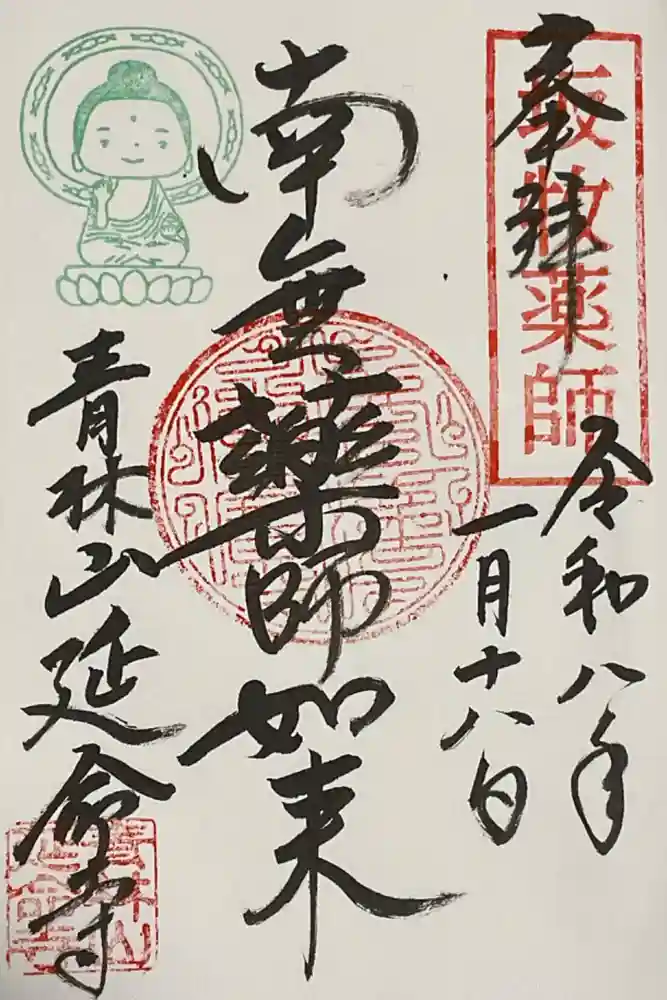 奉拝
薬師
令和八年
一月十八日
南無薬師如来
青林山延命寺